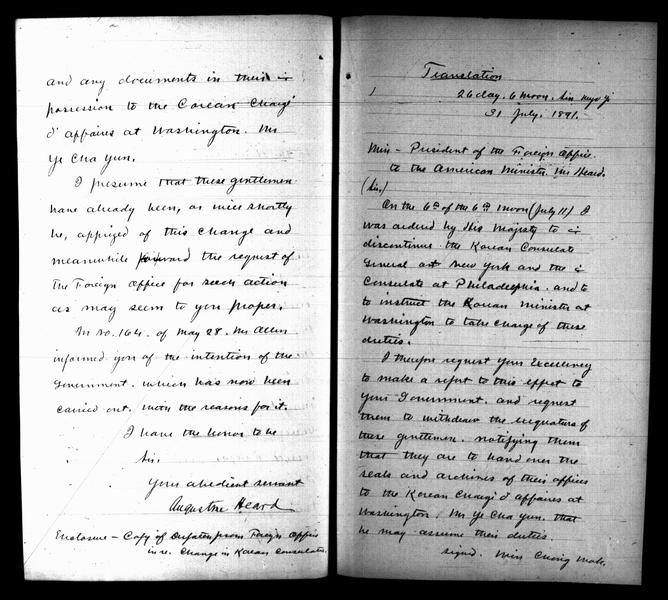 and any documents in their
possession to the Corean Chargé
d'affaires at Washington. Mr
Ye Cha Yun.
I presume that these gentlemen
have already been, or will shortly
be, apprized of this change and
meanwhile forward the request of
the Foreign Office for such action
as may seem to you proper.
In No. 164. of May 28. Mr Allen
informed you of the intention of the
Government. which has now been
carried out. with the reasons for it.
I have the honor to be
Sir.
Your obedient servant
Augustine Heard
Enclosure – Copy of Despatch from Foreign Office
in re. Change in Korean Consulates.
Translation
26 day. 6 moon. Sin myo
31 July. 1891.
Min – President of the Foreign Office.
to the American Minister. Mr Heard.
(Sir.)
On the 6th of the 6th moon (July 11) I
was ordered by His Majesty to
discontinue the Korean Consulate
General at New York and the
Consulate at Philadelphia. and to
to instruct the Korean Minister at
Washington to take charge of these
duties.
I therefore request Your Excellency
to make a report to this effect to
your Government. and request
them to withdraw the exequatura of
these gentlemen. notifying them
that they are to hand over the
seals and archives of their offices
to the Korean Chargé d'affaires at
Washington. Mr Ye Cha Yun. that
he may assume their duties.
signed. Min Chong Mok.